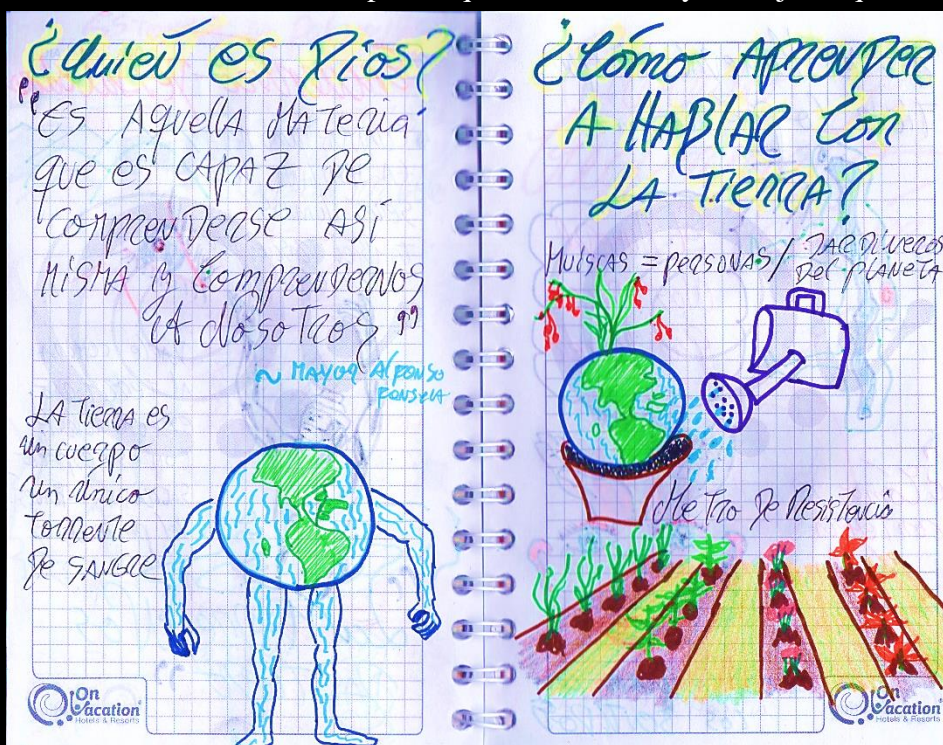 ¿Quién es Dios?
"Es Aquella Materia
que es CAPAZ De
comprenDerse Así
Misma y comprenDernos
A Nosotros"
~ MAYOR Alfonso
Fonseca
LA Tierra es
un cuerpo
un único
Torrente
De SANGRE
On
Vacation
Hotels & Resorts
¿Cómo APrenDer
A HABLAR Con
LA Tierra?
Muiscas = personas / JArDineros
Del PlAneTA
Metro De Resistencia
On
Vacation
Hotels & Resorts